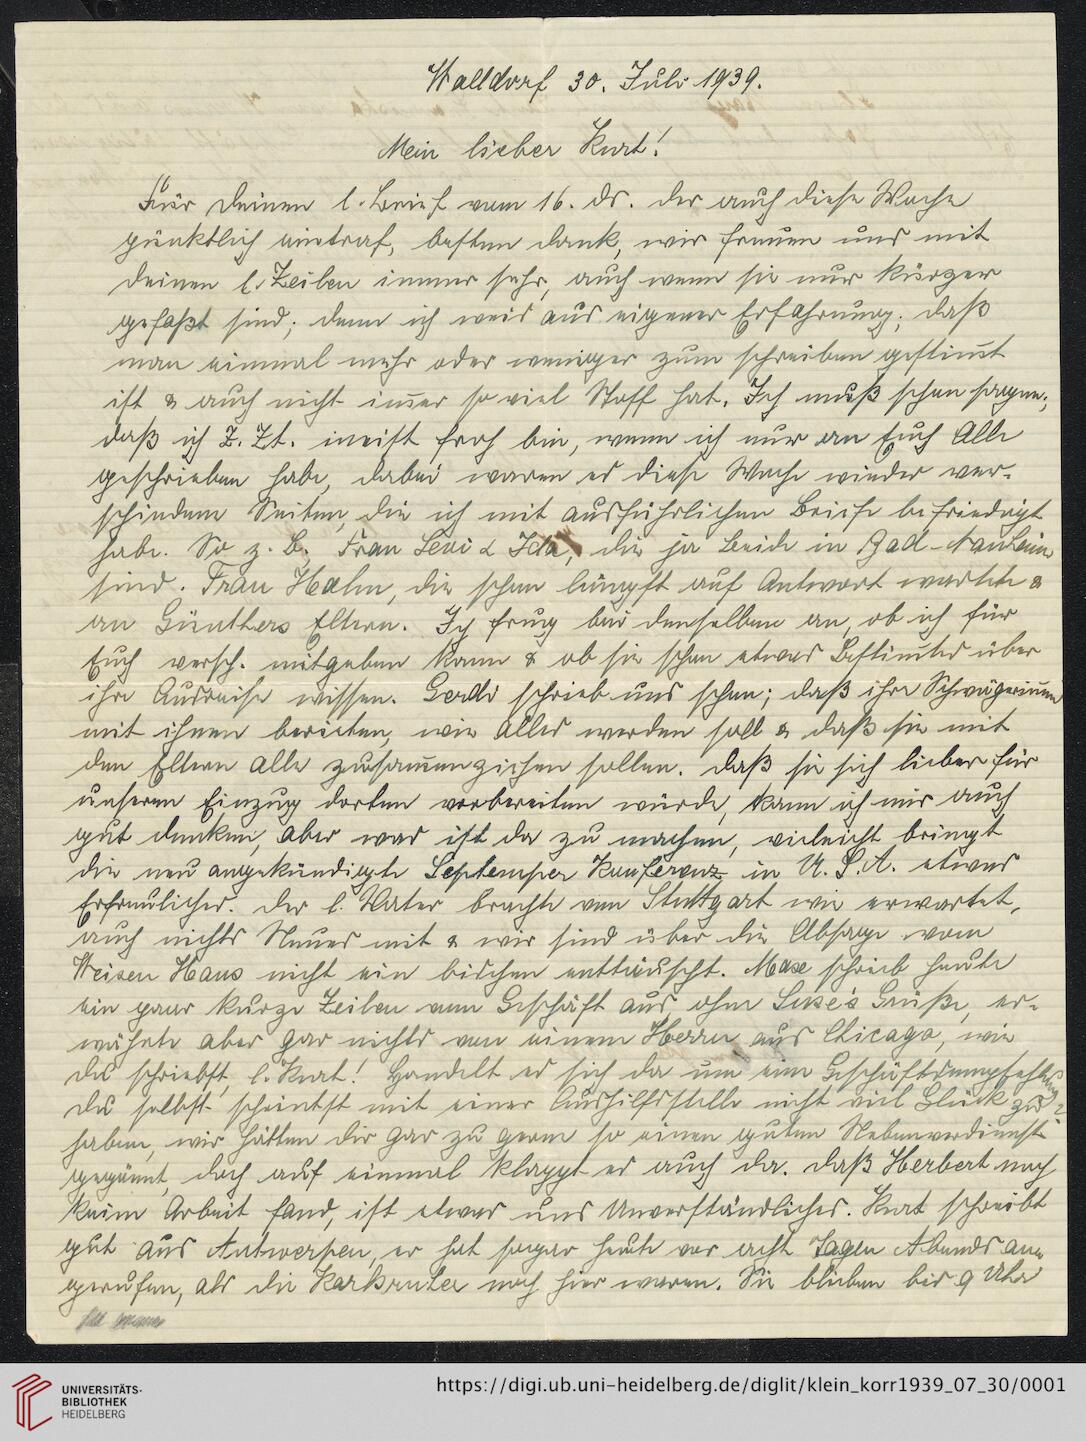 Walldorf 30. Juli 1939.
Mein lieber Kurt!
Für Deinen l. Brief vom 16. ds. der auch diese Woche
pünktlich eintraf, besten Dank, wir freuen uns mit
Deinen l. Zeilen immer sehr, auch wenn sie nur kürzer
gefaßt sind; denn ich weis aus eigener Erfahrung, daß
man einmal mehr oder weniger zum schreiben gestimt
ist & auch nicht imer so viel Stoff hat. Ich muß schon sagen,
daß ich z. Zt. meist froh bin, wenn ich nur an Euch Alle
geschrieben habe, dabei waren es diese Woche wieder ver-
schiedene Seiten, die ich mit ausführlichen Briefe befriedigt
habe. So z. B. Frau Levi & Ida, die ja Beide in Bad-Nauheim
sind. Frau Hahn, die schon längst auf Antwort wartete &
an Günthers Eltern. Ich frug bei denselben an, ob ich für
Euch versch. mitgeben kann & ob sie schon etwas Bestimtes über
ihre Ausreise wissen. Gerdi schrieb uns schon; daß ihre Schwägerinen
mit ihnen berieten, wie Alles werden soll & daß sie mit
den Eltern alle zusamenziehen sollen. Daß sie sich lieber für
unseren Einzug dorten vorbereiten würde, kann ich mir auch
gut denken, aber was ist da zu machen, vieleicht bringt
die neu angekündigte September Konferenz in U. S. A. etwas
Erfreulicher. Der l. Vater brachte von Stuttgart wie erwartet,
auch nichts Neues mit & wir sind über die Absage vom
Weisen Haus nicht ein bischen enttäuscht. Max schrieb heute
ein paar kurze Zeilen vom Geschäft aus, ohne Grüße, er-
wähnte aber gar nichts von einem Herrn aus Chicago, wie
Du schriebst, l. Kurt! Handelt es sich da um eine Geschäftsempfehlung?
Du selbst scheinst mit einer Aushilfsstelle nicht viel Glück zu
haben, wir hätten Dir gar zu gerne so einen guten Nebenverdienst
gegönnt, doch auf einmal klappt es auch da. Daß Herbert noch
keine Arbeit fand, ist etwas uns Unverständliches. Kurt schreibt
gut aus Antwerpen, er hat sogar heute vor acht Tagen Abends ange
gerufen, als die Karlsruher noch hier waren. Sie blieben bis 9 Uhr
UNIVERSITÄTS-
BIBLIOTHEK
HEIDELBERG
https://digi.ub.uni-heidelberg.de/diglit/klein_korr1939_07_30/0001